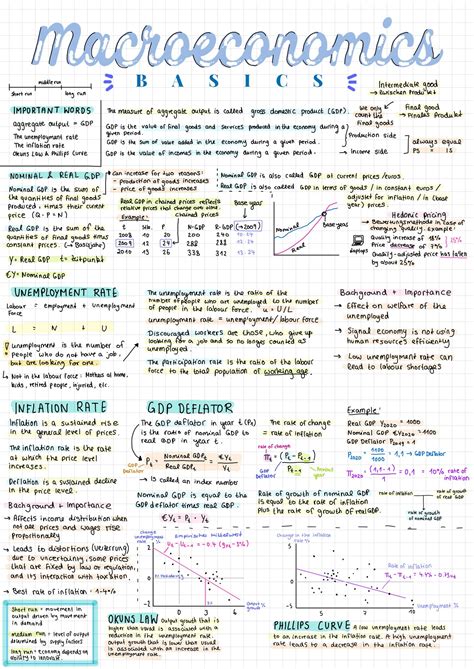 Macroeconomics
BASICS
middle run
short run long run
Intermediate good
→ Zwischen Produkt
IMPORTANT WORDS
aggregate output = GDP
The unemployment rate
The inflation rate
Okuns Law & Philips Curve
The measure of aggregate output is called gross domestic product (GDP).
We only count the final goods
Final good
→ Finales Produkt
GDP is the value of final goods and services produced in the economy during a given period.
→ Production side
GDP is the sum of value added in the economy during a given period.
GDP is the value of incomes in the economy during a given period.
→ Income side
always equal
PS = IS
NOMINAL & REAL GDP
Nominal GDP is the sum of the quantities of final goods produced, times their current price (Q·P=N)
Real GDP is the sum of the quantities of final goods times constant prices. (→Basisjahr)
Y = Real GDP t = Zeitpunkt
€Y = Nominal GDP
Can increase for two reasons:
- production of goods increases
- price of goods increases
Real GDP in chained prices reflects
Example:
2008 10 20
2009 12 24
2010 13 26
Nominal GDP is also called GDP at current prices/euros.
Real GDP is also called GDP in terms of goods / in constant euros / adjusted for inflation / in (base year) prices
Base year
nominal
Real
Base year
Hedonic pricing
Quality increase of 18%
Price decrease of 7%
Quality-adjusted price has fallen by about 25%
UNEMPLOYMENT RATE
Labour = employment + Unemployment
force
L = N + U
Unemployment is the number of people who do not have a job, but are looking for one.
↳ Not in the labour force: Mothers at home, kids, retired people, injured, etc.
The unemployment rate is the ratio of the number of people who are unemployed to the number of people in the labour force. u = U/L
unemployment rate = unemployment/labour force
Discouraged workers are those, who give up looking for a job and so no longer counted as unemployed.
The participation rate is the ratio of the labour force to the total population of working age.
Background + Importance
→ Effect on welfare of the unemployed
→ Signal economy is not using human resources efficiently
→ Low unemployment rate can lead to labour shortages
INFLATION RATE
Inflation is a sustained rise in the general level of prices
The inflation rate is the rate at which the price level increases.
Deflation is a sustained decline in the price level.
Background + Importance
→ Affects income distribution when not all prices and wages rise proportionally
→ Leads to distortions (Verzerrung) due to uncertainty, some prices that are fixed by law or regulation, and its interaction with taxation.
→ Best rate of inflation: 1-4%
GDP DEFLATOR
The GDP deflator in year t (Pt) is the ratio of nominal GDP to real GDP in year t.
GDP deflator
Pt = Nominal GDPt / Real GDPt = €Yt / Yt
→ Is called an index number
Nominal GDP is equal to the GDP deflator times real GDP.
€Yt = Pt · Yt
The rate of change = rate of inflation
rate of change
(Pt - Pt-1)
Pt-1
GDP deflator
Rate of growth of nominal GDP is equal to the rate of inflation plus the rate of growth of real GDP.
Example:
Real GDP Y2020 = 1000
Nominal GDP €Y2020 = 1100
GDP Deflator P2020 = 1100/1000 = 1,1 → GDP Deflator
π2020 = (1,1-1)/1 = 0,1 = 10% rate of inflation
rate of change
rate of inflation
rate of growth of nominal GDP
Change in unemployment rate
3
Output growth
Rate of inflation
5 10
Unemployment rate
short run = movement in output driven by movement in demand
medium run = level of output determined by supply factors
long run = Economy depends on ability to innovate.
OKUNS LAW
Output growth that is higher than usual is associated with a reduction in the unemployment rate. Output growth that is lower than usual is associated with an increase in the unemployment rate.
PHILLIPS CURVE
A low unemployment rate leads to an increase in the inflation rate. A high unemployment rate leads to a decrease in the inflation rate.